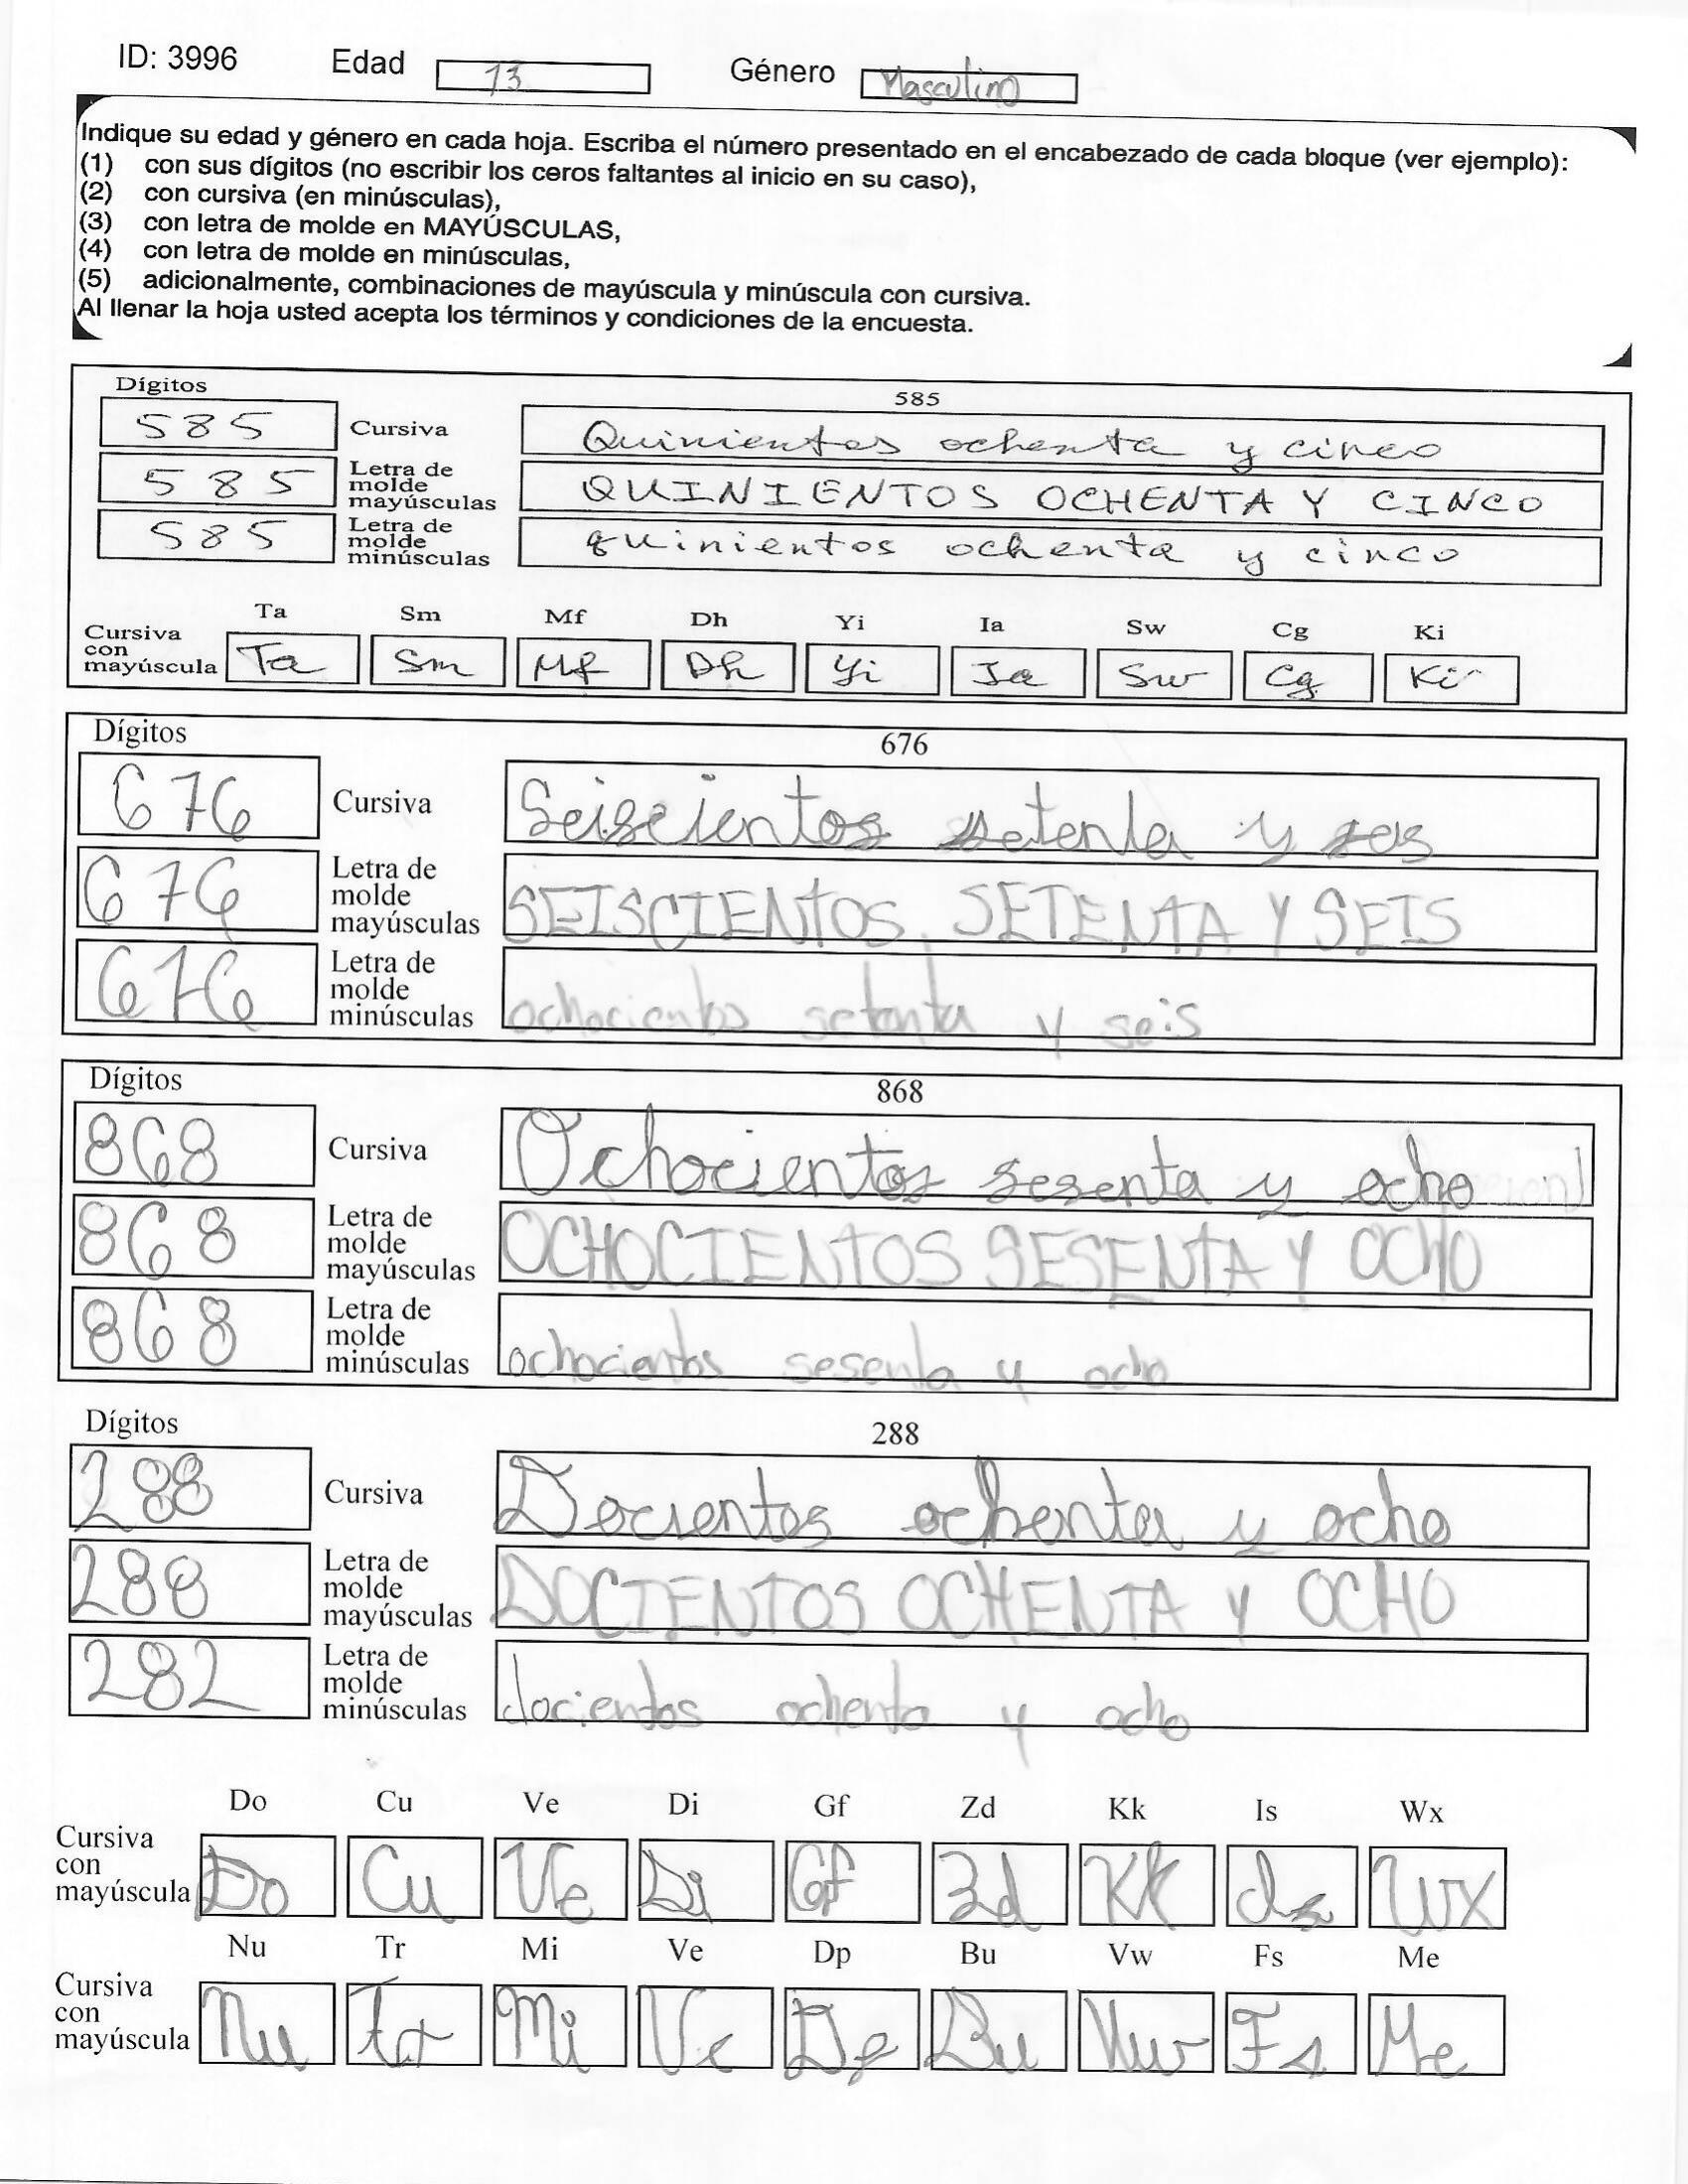 ID: 3996 Edad 13 Género Masculino
Indique su edad y género en cada hoja. Escriba el número presentado en el encabezado de cada bloque (ver ejemplo):
(1) con sus dígitos (no escribir los ceros faltantes al inicio en su caso),
(2) con cursiva (en minúsculas),
(3) con letra de molde en MAYÚSCULAS,
(4) con letra de molde en minúsculas,
(5) adicionalmente, combinaciones de mayúscula y minúscula con cursiva.
Al llenar la hoja usted acepta los términos y condiciones de la encuesta.
Dígitos 585
585 Cursiva Quinientos ochenta y cinco
585 Letra de molde mayúsculas QUINIENTOS OCHENTA Y CINCO
585 Letra de molde minúsculas quinientos ochenta y cinco
Ta Sm Mf Dh Yi Ia Sw Cg Ki
Cursiva con mayúscula Ta Sm Mf Dh Yi Ia Sw Cg Ki
Dígitos 676
676 Cursiva Seiscientos setenta y ses
676 Letra de molde mayúsculas SEISCIENTOS SETENTA Y SEIS
676 Letra de molde minúsculas ochocientos setenta y seis
Dígitos 868
868 Cursiva Ochocientos sesenta y ocho
868 Letra de molde mayúsculas OCHOCIENTOS SESENTA Y OCHO
868 Letra de molde minúsculas ochocientos sesenta y ocho
Dígitos 288
288 Cursiva Docientos ochenta y ocho
288 Letra de molde mayúsculas DOCIENTOS OCHENTA Y OCHO
282 Letra de molde minúsculas docientos ochenta y ocho
Do Cu Ve Di Gf Zd Kk Is Wx
Cursiva con mayúscula Do Cu Ve Di Gf Zd Kk Is Wx
Nu Tr Mi Ve Dp Bu Vw Fs Me
Cursiva con mayúscula Nu Tr Mi Ve Dp Bu Vw Fs Me